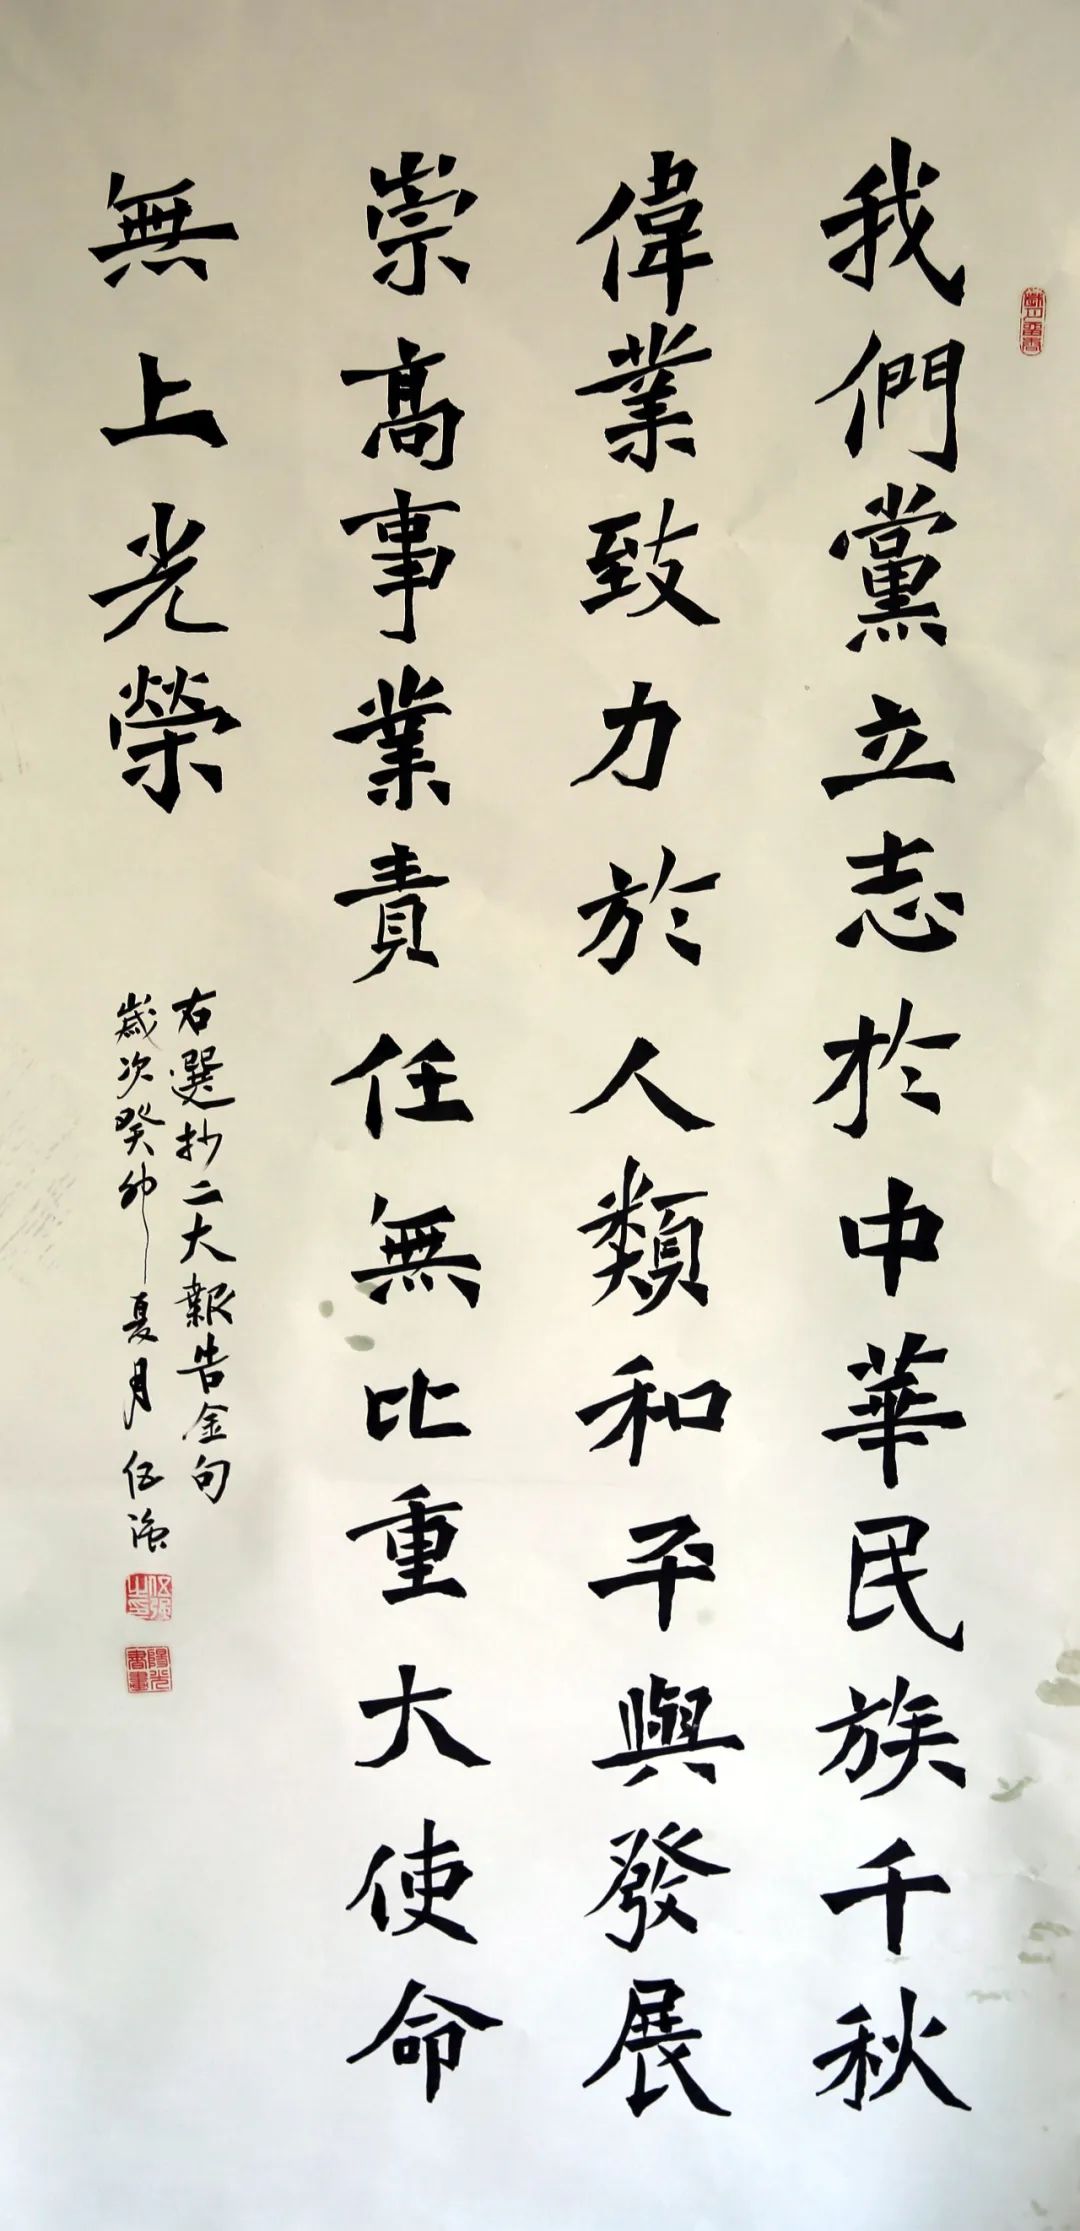 我們黨立志於中華民族千秋
偉業致力於人類和平與發展
崇高事業責任無比重大使命
無上光榮
右選抄二大報告金句
歲次癸卯夏月伍強
伍強之印
陽光書畫